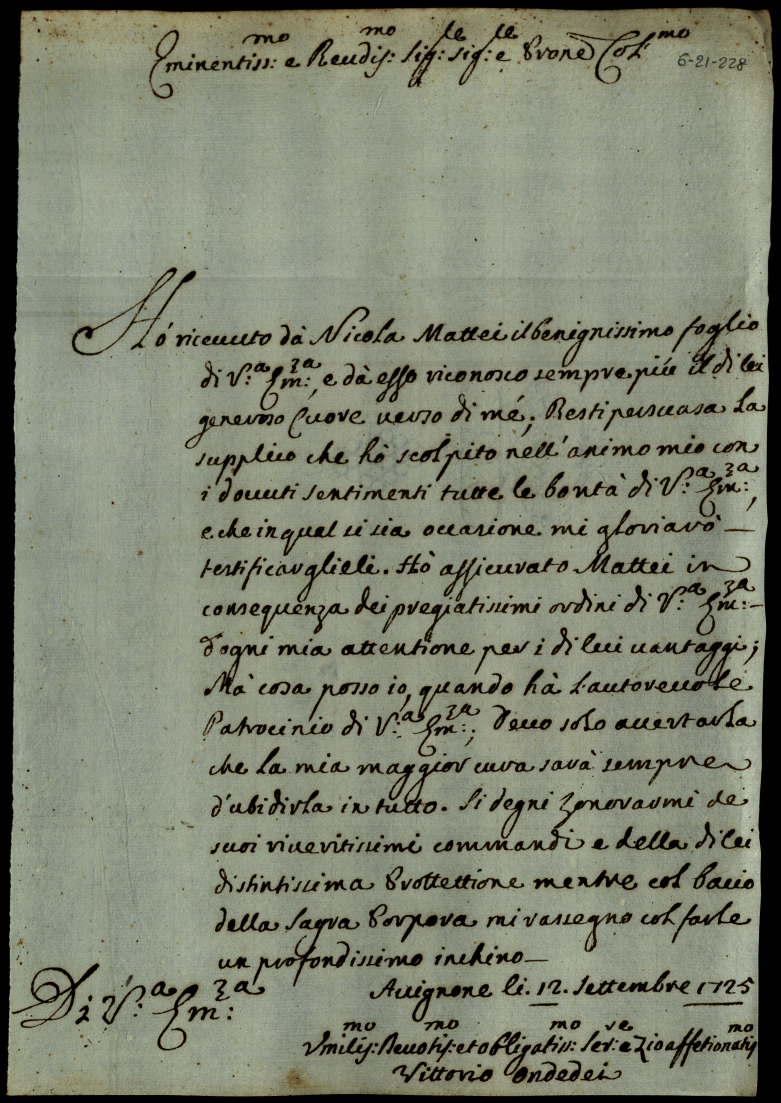 Eminentiss:mo e Reudis:mo Sig:re Sig:re e Prone Col:mo
6-21-228
Hó riceuuto dà Nicola Mattei il benignissimo foglio
di V:a Em:za, e dà esso riconosco sempre più il di lei
generoso Cuore uerso di mé; Resti persuasa La
supplico che hò scolpito nell'animo mio con
i douuti sentimenti tutte le bontà di V:a Em:za,
e che in qual si sia occasione mi gloriarò
testificarglieli. Hò assicurato Mattei in
consequenza dei pregiatissimi ordini di V:a Em:za
d'ogni mia attentione per i di lui uantaggi;
Mà cosa posso io, quando hà L'autoreuole
Patrocinio di V:a Em:za; Deuo solo accertarla
che la mia maggior cura sarà sempre
d'ubidirla in tutto. Si degni honorarmi de
suoi riueritissimi commandi e della di lei
distintissima Prottettione mentre col bacio
della Sagra Porpora mi rassegno col farle
un profondissimo inchino
Di V:a Em:za
Auignone li. 12. Settembre 1725
Vmilis:mo Deuotis:mo et obligatiss:mo Ser:re e Zio affetionatis:mo
Vittorio Ondedei